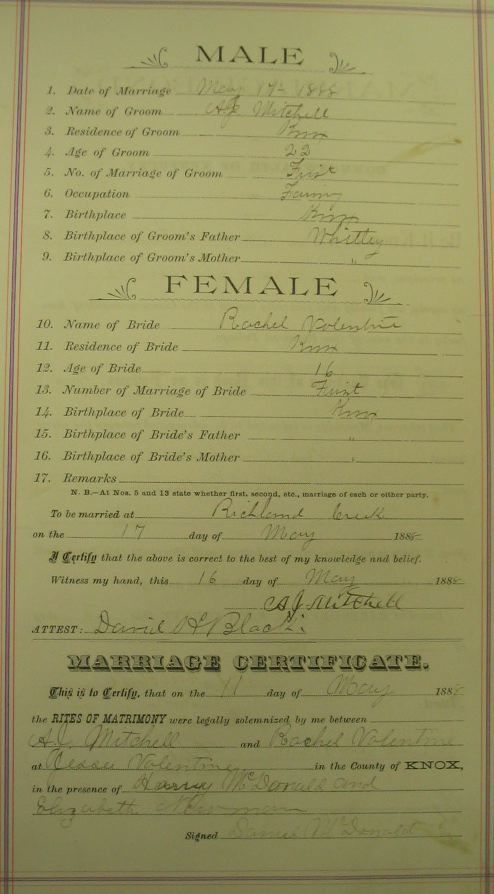 MALE
1. Date of Marriage May 17th 1888
2. Name of Groom A.J. Mitchell
3. Residence of Groom Knox
4. Age of Groom 22
5. No. of Marriage of Groom First
6. Occupation
7. Birthplace Knox
8. Birthplace of Groom's Father Whitley
9. Birthplace of Groom's Mother "
FEMALE
10. Name of Bride Rachel Valentine
11. Residence of Bride Knox
12. Age of Bride 16
13. Number of Marriage of Bride First
14. Birthplace of Bride Knox
15. Birthplace of Bride's Father "
16. Birthplace of Bride's Mother "
17. Remarks
N. B.—At Nos. 5 and 13 state whether first, second, etc., marriage of each or either party.
To be married at Richland Creek
on the 17 day of May 1888
I Certify that the above is correct to the best of my knowledge and belief.
Witness my hand, this 16 day of May 1888
A J Mitchell
ATTEST: David
MARRIAGE CERTIFICATE.
This is to Certify, that on the day of May 1888
the RITES OF MATRIMONY were legally solemnized by me between
A.J. Mitchell and Rachel Valentine
at Valentine in the County of KNOX,
in the presence of Harvey McDonald and
Elizabeth
Signed McDonald